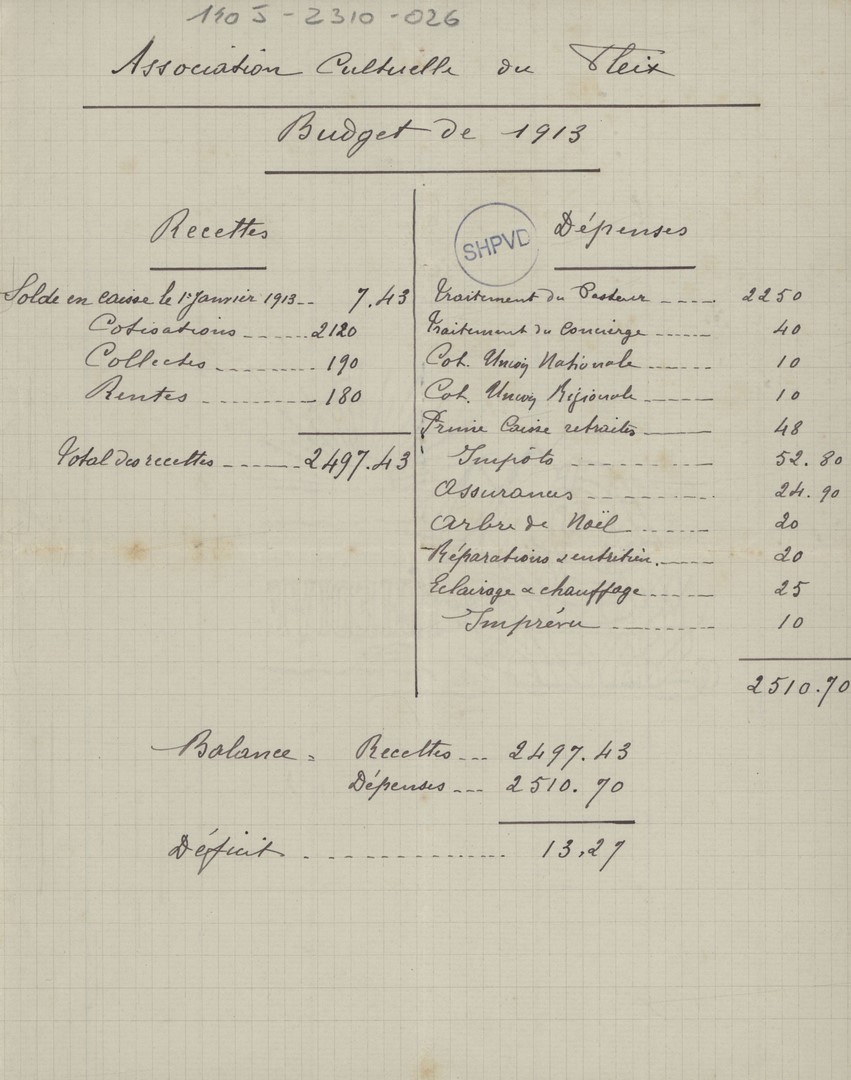 140 J - 2310 - 026
Association Cultuelle du Fleix
Budget de 1913
Recettes
Solde en caisse le 1er Janvier 1913 -- 7.43
Cotisations ------ 2120
Collectes ------ 190
Rentes ------ 180
Total des recettes ------ 2497.43
SHPVD
Dépenses
Traitement du Pasteur ---- 2250
Traitement du Concierge ----- 40
Cot. Union Nationale ----- 10
Cot. Union Régionale ----- 10
Prime Caisse retraites ----- 48
Impôts ------ 52.80
Assurances ------ 24.90
Arbre de Noël ------ 20
Réparations & entretien ----- 20
Eclairage & chauffage ----- 25
Imprévu ------ 10
2510.70
Balance = Recettes --- 2497.43
Dépenses --- 2510.70
Déficit ............... 13.27